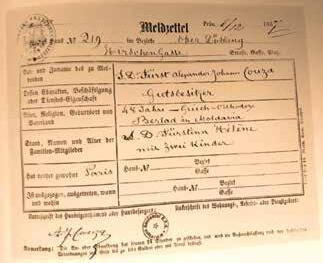 Meldzettel
Haus No 219 im Bezirke Ober Döbling
Hirschengasse Strasse, Gasse, Platz
Vor- und Zuname des zu Meldenden
S.D. Fürst Alexander Johann Couza
Dessen Charakter, Beschäftigung oder Dienst-Eigenschaft
Gutsbesitzer
Alter, Religion, Geburtsort und Vaterland
48 Jahre – Griech. Orthodox
Berlad in Moldavia
Stand, Namen und Alter der Familien-Mitglieder
I.D. Fürstinn Hélène
mit zwei Kinder
Hat vorher gewohnt Paris
Haus-No Bezirk
Gasse
Ist ausgezogen, ausgetreten, wann und wohin
Haus-No Bezirk
Gasse
Unterschrift des Hauseigenthümers oder Hausbesorgers
Unterschrift des Wohnungs-, Bestand- oder Dienstgebers
Anmerkung: